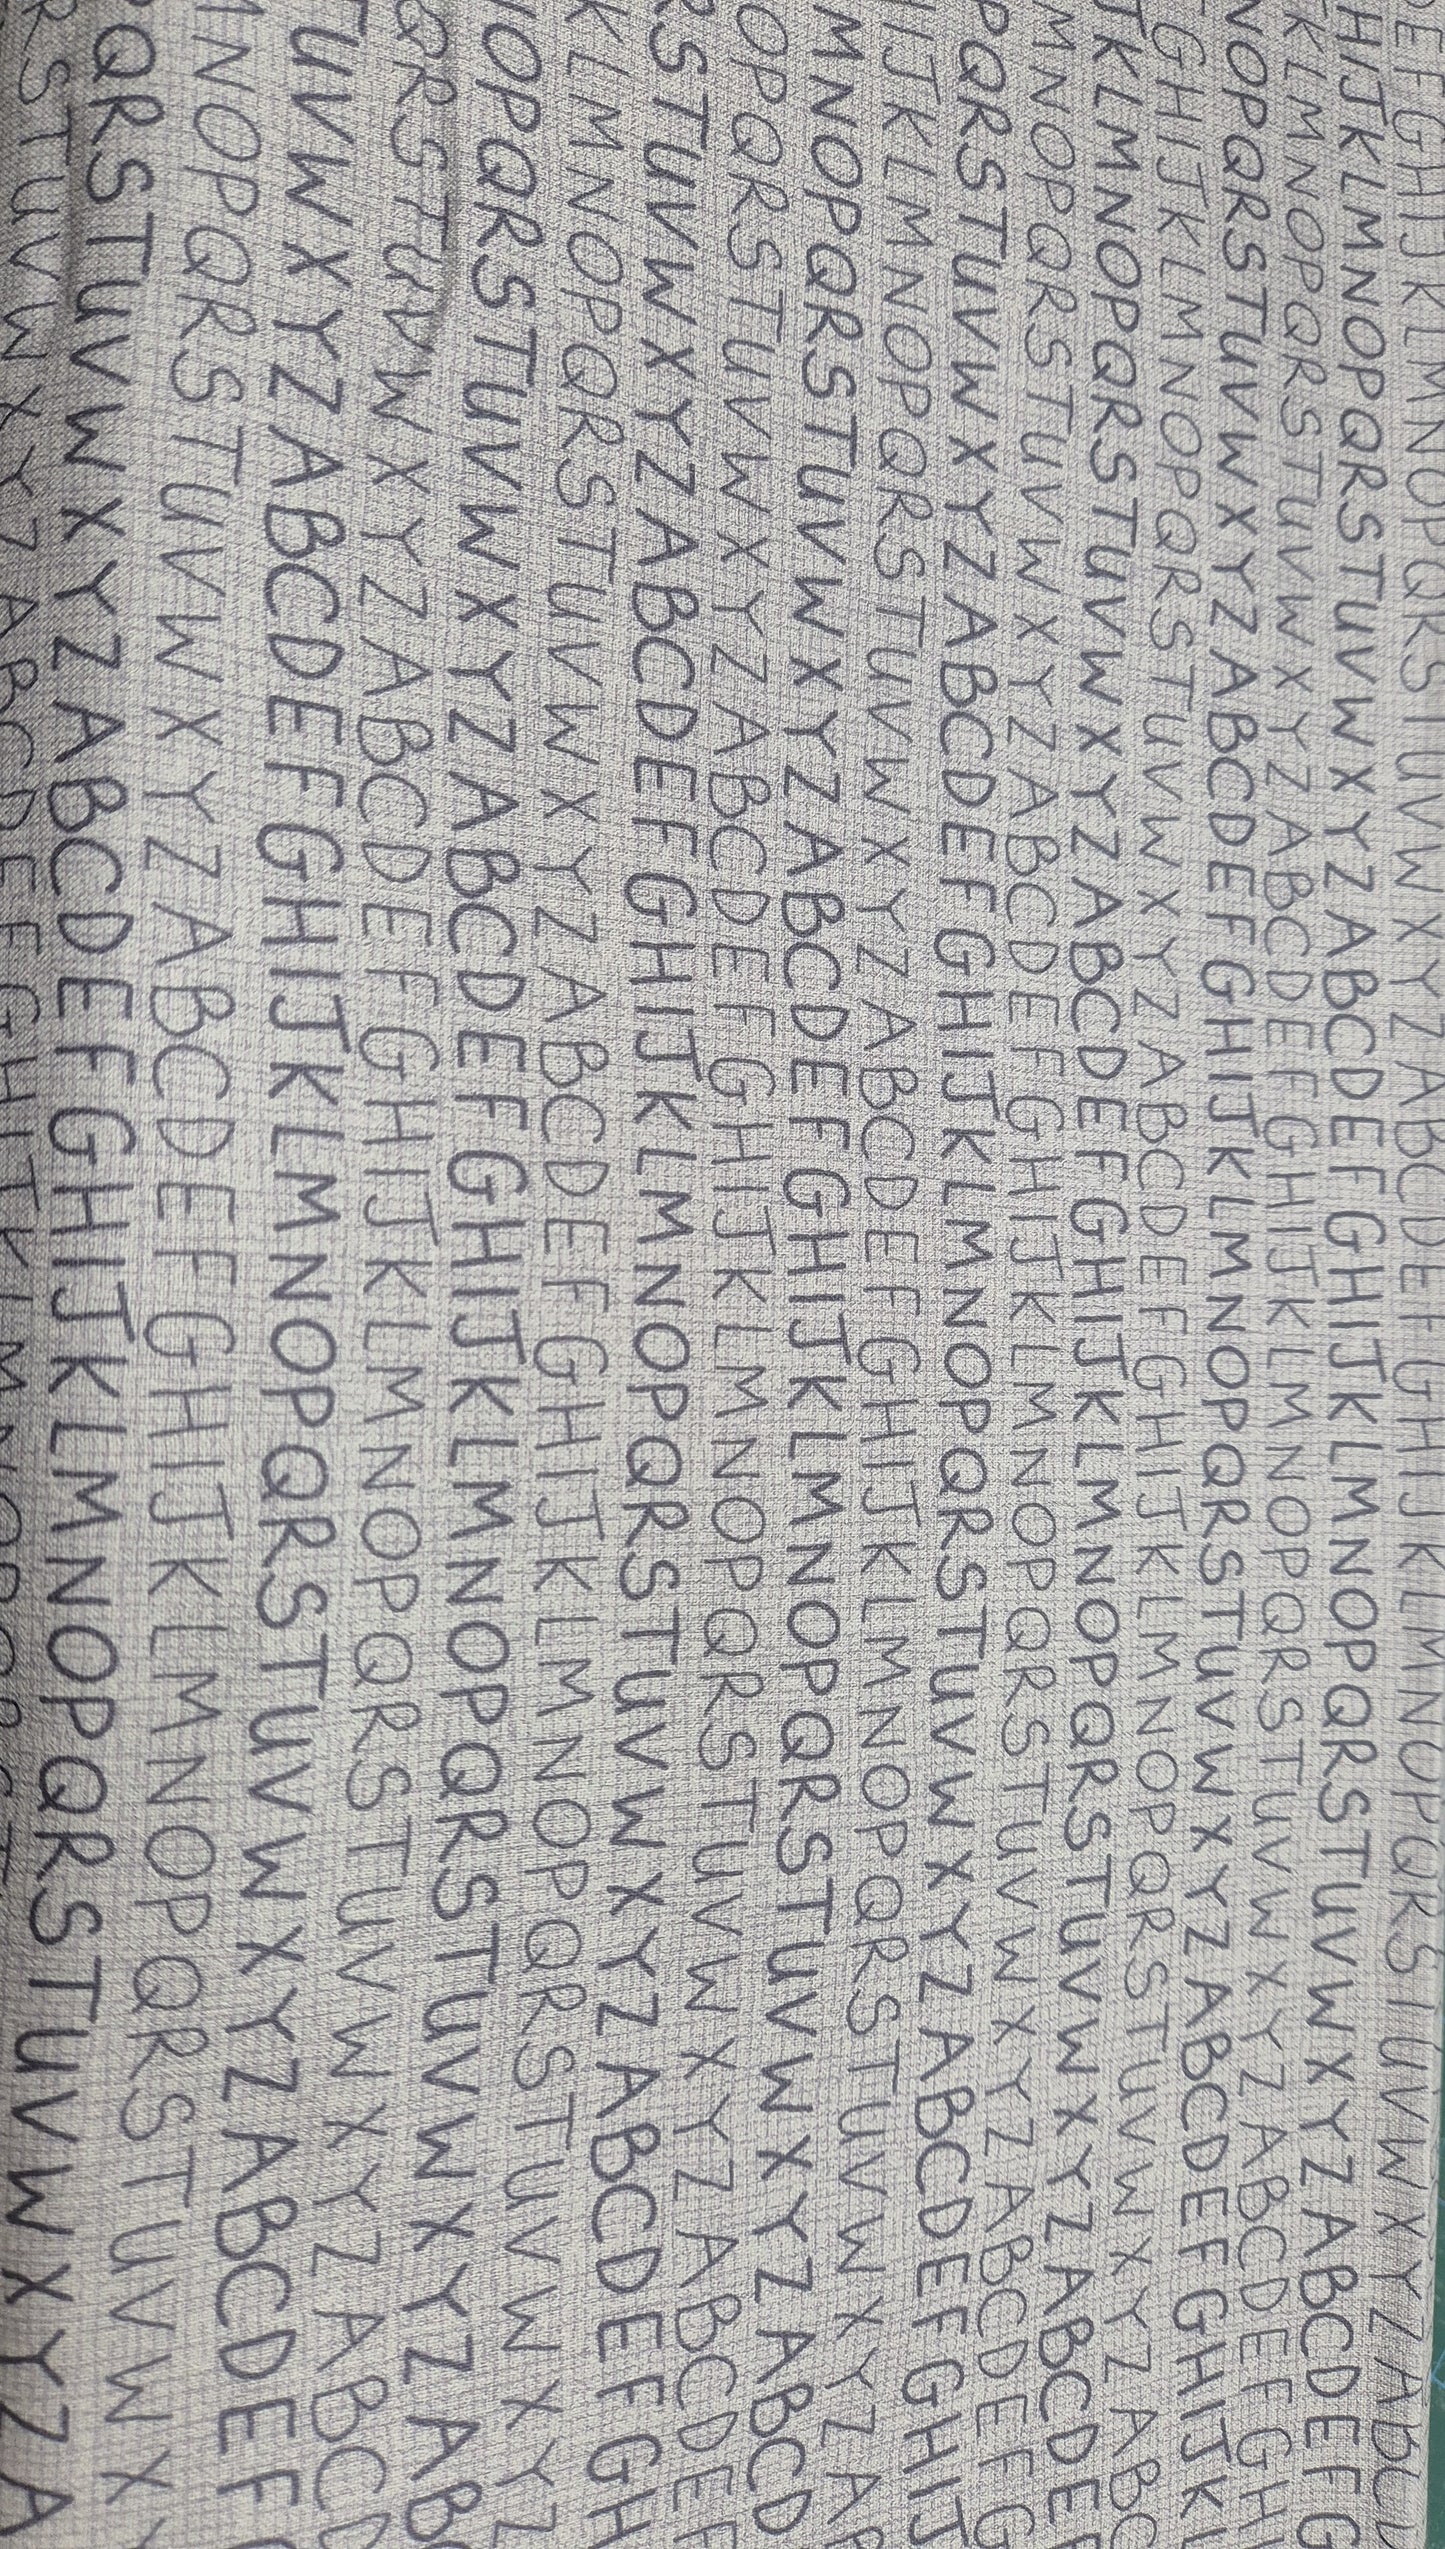 DEFGHIJKLMNOPQRSTUVWXYZABCDEFGHIJKLMNOPQRSTUVWXYZABCD
HIJKLMNOPQRSTUVWXYZABCDEFGHIJKLMNOPQRSTUVWXYZABCDEFG
KLMNOPQRSTUVWXYZABCDEFGHIJKLMNOPQRSTUVWXYZABCDEFGHI
NOPQRSTUVWXYZABCDEFGHIJKLMNOPQRSTUVWXYZABCDEFGHIJKL
FGHIJKLMNOPQRSTUVWXYZABCDEFGHIJKLMNOPQRSTUVWXYZABC
JKLMNOPQRSTUVWXYZABCDEFGHIJKLMNOPQRSTUVWXYZABCDEF
MNOPQRSTUVWXYZABCDEFGHIJKLMNOPQRSTUVWXYZABCDEFG
PQRSTUVWXYZABCDEFGHIJKLMNOPQRSTUVWXYZABCDEFGHIJ
HIJKLMNOPQRSTUVWXYZABCDEFGHIJKLMNOPQRSTUVWXYZA
MNOPQRSTUVWXYZABCDEFGHIJKLMNOPQRSTUVWXYZABCD
OPQRSTUVWXYZABCDEFGHIJKLMNOPQRSTUVWXYZABCDEF
RSTUVWXYZABCDEFGHIJKLMNOPQRSTUVWXYZABCDEFGH
KLMNOPQRSTUVWXYZABCDEFGHIJKLMNOPQRSTUVWXYZ
NOPQRSTUVWXYZABCDEFGHIJKLMNOPQRSTUVWXYZABC
QRSTUVWXYZABCDEFGHIJKLMNOPQRSTUVWXYZABCD
TUVWXYZABCDEFGHIJKLMNOPQRSTUVWXYZABCDEFG
MNOPQRSTUVWXYZABCDEFGHIJKLMNOPQRSTUVWXY
PQRSTUVWXYZABCDEFGHIJKLMNOPQRSTUVWXYZA
RSTUVWXYZABCDEFGHIJKLMNOPQRST